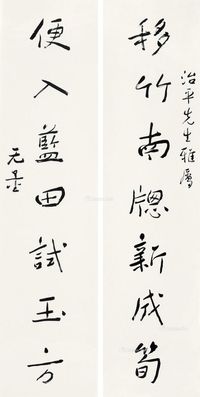 治平先生雅属
移竹南牕新成筍
便入藍田試玉方
无量